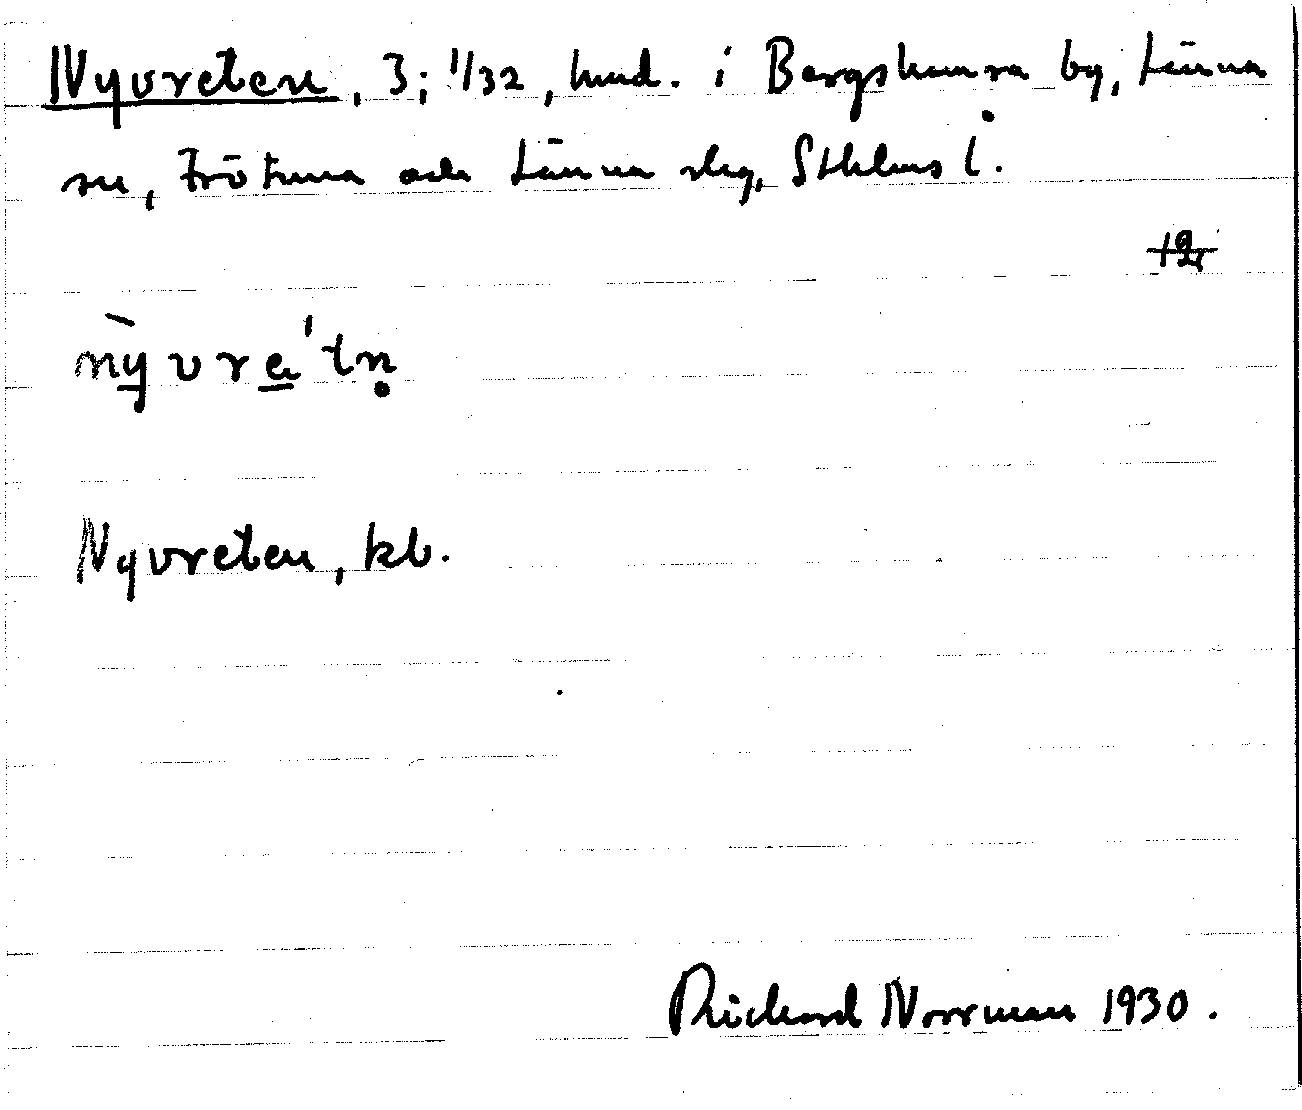 Nyvreten, 3; 1/32, hmd. i Bergshamra by, Länna
sn, Frötuna och Länna slg, Sthlms l.
nỳvre̱'tṇ
Nyvreten, kb.
Richard Norrman 1930.